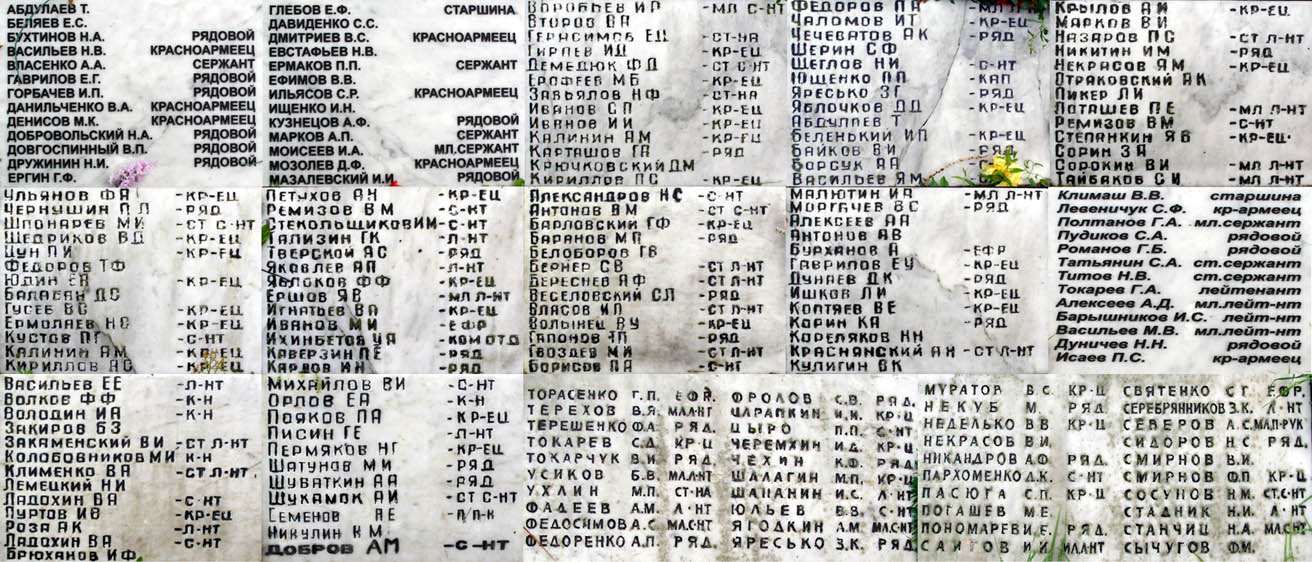 АБДУЛАЕВ Т.
БЕЛЯЕВ Е.С.
БУХТИНОВ Н.А. РЯДОВОЙ
ВАСИЛЬЕВ Н.В. КРАСНОАРМЕЕЦ
ВЛАСЕНКО А.А. СЕРЖАНТ
ГАВРИЛОВ Е.Г. РЯДОВОЙ
ГОРБАЧЕВ И.П. РЯДОВОЙ
ДАНИЛЬЧЕНКО В.А. КРАСНОАРМЕЕЦ
ДЕНИСОВ М.К. КРАСНОАРМЕЕЦ
ДОБРОВОЛЬСКИЙ Н.А. РЯДОВОЙ
ДОВГОСПИННЫЙ В.П. РЯДОВОЙ
ДРУЖИНИН Н.И. РЯДОВОЙ
ЕРГИН Г.Ф.
ГЛЕБОВ Е.Ф. СТАРШИНА
ДАВИДЕНКО С.С.
ДМИТРИЕВ В.С. КРАСНОАРМЕЕЦ
ЕВСТАФЬЕВ Н.В.
ЕРМАКОВ П.П. СЕРЖАНТ
ЕФИМОВ В.В.
ИЛЬЯСОВ С.Р. КРАСНОАРМЕЕЦ
ИЩЕНКО И.Н.
КУЗНЕЦОВ А.Ф. РЯДОВОЙ
МАРКОВ А.П. СЕРЖАНТ
МОИСЕЕВ И.А. МЛ.СЕРЖАНТ
МОЗОЛЕВ Д.Ф. КРАСНОАРМЕЕЦ
МАЗАЛЕВСКИЙ И.И. РЯДОВОЙ
ВОРОБЬЕВ ИР -МЛ С-НТ
ВТОРОВ ВА
ГЕРАСИМОВ ЕЦ -СТ-НА
ГИРПЕВ ИЦ -КР-ЕЦ
ДЕМЕДЮК ФД -СТ С-НТ
ЕРОФЕЕВ МБ -КР-ЕЦ
ЗАВЬЯЛОВ НФ -СТ-НА
ИВАНОВ СП -КР-ЕЦ
ИВАНОВ ИИ -КР-ЕЦ
КАЛИНИН АМ -КР-ЕЦ
КАРТАШОВ ГА -РЯД
КРЮЧКОВСКИЙ ДМ
КИРИЛЛОВ ПС -КР-ЕЦ
ФЕДОРОВ ПА
ЧАЛОМОВ ИТ -КР-ЕЦ
ЧЕЧЕВАТОВ АК -РЯД
ШЕРИН СФ -КР-ЕЦ
ЩЕГЛОВ НИ -С-НТ
ЮЩЕНКО ПП -КАП
ЯРЕСЬКО ЗГ -РЯД
ЯБЛОЧКОВ ДД -КР-ЕЦ
АБДУЛЛЕВ Т
БЕЛЕНЬКИЙ ИП -КР-ЕЦ
БАЙКОВ ВИ -РЯД
БОРСУК АА
ВАСИЛЬЕВ ЯМ
КРЫЛОВ АИ -КР-ЕЦ
МАРКОВ ВИ
НАЗАРОВ ПС -СТ Л-НТ
НИКИТИН ИМ -РЯД
НЕКРАСОВ ЯМ -КР-ЕЦ
ОТРАКОВСКИЙ АК
ПИКЕР ЛИ
ПОТАШЕВ ПЕ -МЛ Л-НТ
РЕМИЗОВ ВМ -С-НТ
СТЕПАНКИН ЯВ -КР-ЕЦ
СОРИН ЗА
СОРОКИН ВИ -МЛ Л-НТ
ТАЙБАКОВ СИ -МЛ Л-НТ
УЛЬЯНОВ ФА -КР-ЕЦ
ЧЕРНУШИН ПЛ -РЯД
ШПОНАРЕВ МИ -СТ С-НТ
ЩЕДРИКОВ ВД -КР-ЕЦ
ЦУН ПИ -КР-ЕЦ
ФЕДОРОВ ТФ
ЮДИН ЕЯ -КР-ЕЦ
БАЛАСАН ДС
ГУСЕВ ВС -КР-ЕЦ
ЕРМОЛАЕВ НС -КР-ЕЦ
КУСТОВ ПГ -С-НТ
КАЛИНИН АМ -КР-ЕЦ
КИРИЛЛОВ АС -КР-ЕЦ
ПЕТУХОВ АН -КР-ЕЦ
РЕМИЗОВ ВМ -С-НТ
СТЕКОЛЬЩИКОВ ИМ -С-НТ
ТАЛИЗИН ГК -Л-НТ
ТВЕРСКОЙ ЯС -РЯД
ЯКОВЛЕВ АП -Л-НТ
ЯБЛОКОВ ФФ -КР-ЕЦ
ЕРШОВ ЯВ -МЛ Л-НТ
ИГНАТЬЕВ ВА -КР-ЕЦ
ИВАНОВ МИ -ЕФР
ИХИНБЕТОВ УА -КОМ ОТД
КАВЕРЗИН ПЕ -РЯД
КАРДОВ ИН -РЯД
АЛЕКСАНДРОВ НС -С-НТ
АНТОНОВ ВМ -СТ Л-НТ
БАРЛОВСКИЙ ГФ -КР-ЕЦ
БАРАНОВ МП -РЯД
БЕЛОБОРОВ ГВ
БЕРНЕР СВ -СТ Л-НТ
БЕРЕСНЕВ АФ -СТ Л-НТ
ВЕСЕЛОВСКИЙ СЛ -РЯД
ВЛЯСОВ ИП -СТ Л-НТ
ВОЛЫНЕЦ ВУ -КР-ЕЦ
ГАПОНОВ ГП -КР-ЕЦ
ГВОЗДЕВ МИ -СТ Л-НТ
БОРИСОВ ПА -С-НТ
МАЛЮТИН ИА -МЛ Л-НТ
МОРГАЧЕВ ВС -РЯД
АЛЕКСЕЕВ АА
АНТОНОВ АВ
БУРХАНОВ А -ЕФР
ГАВРИЛОВ ЕУ -КР-ЕЦ
ДУНАЕВ ДК -РЯД
ИШКОВ ЛИ -КР-ЕЦ
КОПТЯЕВ ВЕ -КР-ЕЦ
КОРИН КА -РЯД
КОРЕЛЯКОВ НН
КРАСНЯНСКИЙ АН -СТ Л-НТ
КУЛИГИН ВК
Климаш В.В. старшина
Левеничук С.Ф. кр-армеец
Полтанов Г.А. мл.сержант
Пудиков С.А. рядовой
Романов Г.Б. рядовой
Татьянин С.А. ст.сержант
Титов Н.В. ст.сержант
Токарев Г.А. лейтенант
Алексеев А.Д. мл.лейт-нт
Барышников И.С. лейт-нт
Васильев М.В. мл.лейт-нт
Дуничев Н.Н. рядовой
Исаев П.С. кр-армеец
ВАСИЛЬЕВ ЕЕ -Л-НТ
ВОЛКОВ ФФ -К-Н
ВОЛОДИН ИА -К-Н
ЗАКИРОВ БЗ
ЗАКАМЕНСКИЙ ВИ -СТ Л-НТ
КОЛОБОВНИКОВ МИ К-Н
КЛИМЕНКО ВА -СТ Л-НТ
ЛЕМЕЦКИЙ НИ
ЛАДОХИН ВА -С-НТ
ПУРТОВ ИВ -КР-ЕЦ
РОЗА АК -Л-НТ
ЛАДОХИН ВА -С-НТ
БРЮХАНОВ ИФ
МИХАЙЛОВ ВИ -С-НТ
ОРЛОВ ЕА -К-Н
ПОЯКОВ ПА -КР-ЕЦ
ПИСИН ГЕ -Л-НТ
ПЕРМЯКОВ НГ -КР-ЕЦ
ШАТУНОВ МИ -РЯД
ШУВАТКИН АА -РЯД
ШУКАМОК АИ -СТ С-НТ
СЕМЕНОВ АЕ -П/П-К
НИКУЛИН КМ
ДОБРОВ АМ -С-НТ
ТОРАСЕНКО Г.П. ЕФР.
ТЕРЕХОВ В.Я. МЛ.Л-НТ
ТЕРЕШЕНКО Ф.А. РЯД.
ТОКАРЕВ С.Д. КР-Ц
ТОКАРЧУК В.И. РЯД.
УСИКОВ Б.В. МЛ.Л-НТ
УХЛИН М.П. СТ-НА
ФАДЕЕВ А.М. Л-НТ
ФЕДОСИМОВ А.С МЛ.С-НТ
ФЕДОРЕНКО А.П. РЯД.
ФРОЛОВ С.В. РЯД.
ЦАРАПКИН И.И. КР-Ц
ЦЫРО П.П. С-НТ
ЧЕРЕМХИН И.Д. КР-Ц
ЧЕХИН К.Ф. РЯД.
ШАЛАГИН М.П. КР-Ц
ШАПАНИН И.С. Л-НТ
ЮЛЬЕВ В.В. С-НТ
ЯГОДКИН А.М МЛ.С-НТ
ЯРЕСЬКО З.К. РЯД.
МУРАТОВ В.С. КР-Ц
НЕКУБ М. РЯД.
НЕДЕЛЬКО В.В. КР-Ц
НЕКРАСОВ В.И.
НИКАНДРОВ А.Ф. РЯД.
ПАРХОМЕНКО Д.К. С-НТ
ПАСЮГА С.П. КР-Ц
ПОГАШЕВ М.Е.
ПОНОМАРЕВ И.Е. РЯД.
САИТОВ И.И. МЛ.Л-НТ
СВЯТЕНКО С.Г. ЕФР.
СЕРЕБРЯННИКОВ З.К. Л-НТ
СЕВЕРОВ А.С. МЛ.П-РУК
СИДОРОВ Н.С. РЯД.
СМИРНОВ В.И.
СМИРНОВ Ф.П КР-Ц
СОСУНОВ Н.М. СТ.С-НТ
СТАДНИК Н.И. Л-НТ
СТАНЧИЦ Н.А. МЛ.С-НТ
СЫЧУГОВ Ф.М.